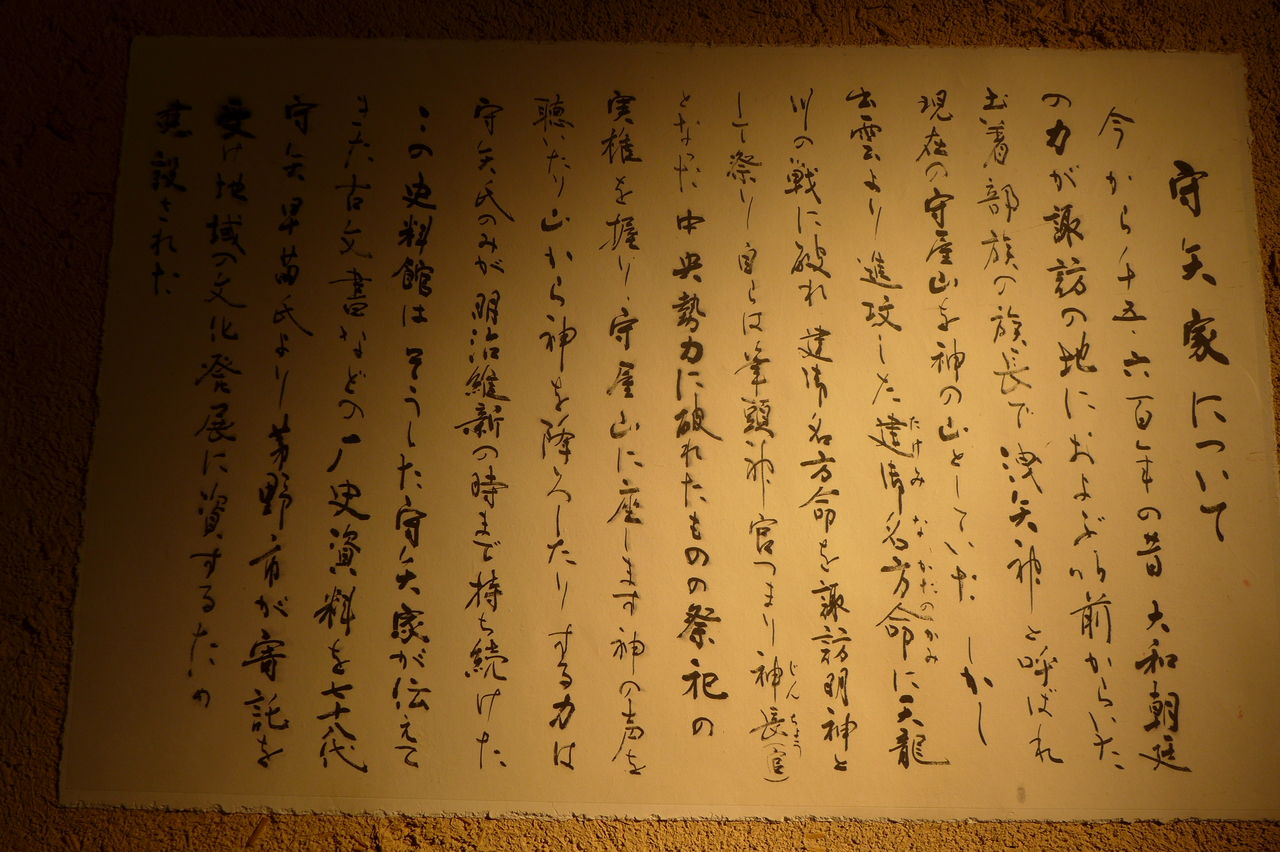 守矢家について
今から千五・六百年の昔 大和朝廷
の力が諏訪の地におよぶ以前からいた
土着部族の族長で 洩矢神と呼ばれ
現在の守屋山を神の山としていた しかし
出雲より進攻した建御名方命に天龍
たけみ なかたのかみ
川の戦に破れ 建御名方命を諏訪明神と
して祭り 自らは筆頭神官つまり神長(官)
じん ちょう
となった 中央勢力に破れたものの祭祀の
実権を握り 守屋山に座します神の声を
聴いたり山から神を降ろしたりする力は
守矢氏のみが明治維新の時まで持ち続けた
この史料館は そうした守矢家が伝えて
きた古文書などの厂史資料を七十八代
守矢早苗氏より茅野市が寄託を
受け地域の文化発展に資するため
建設された